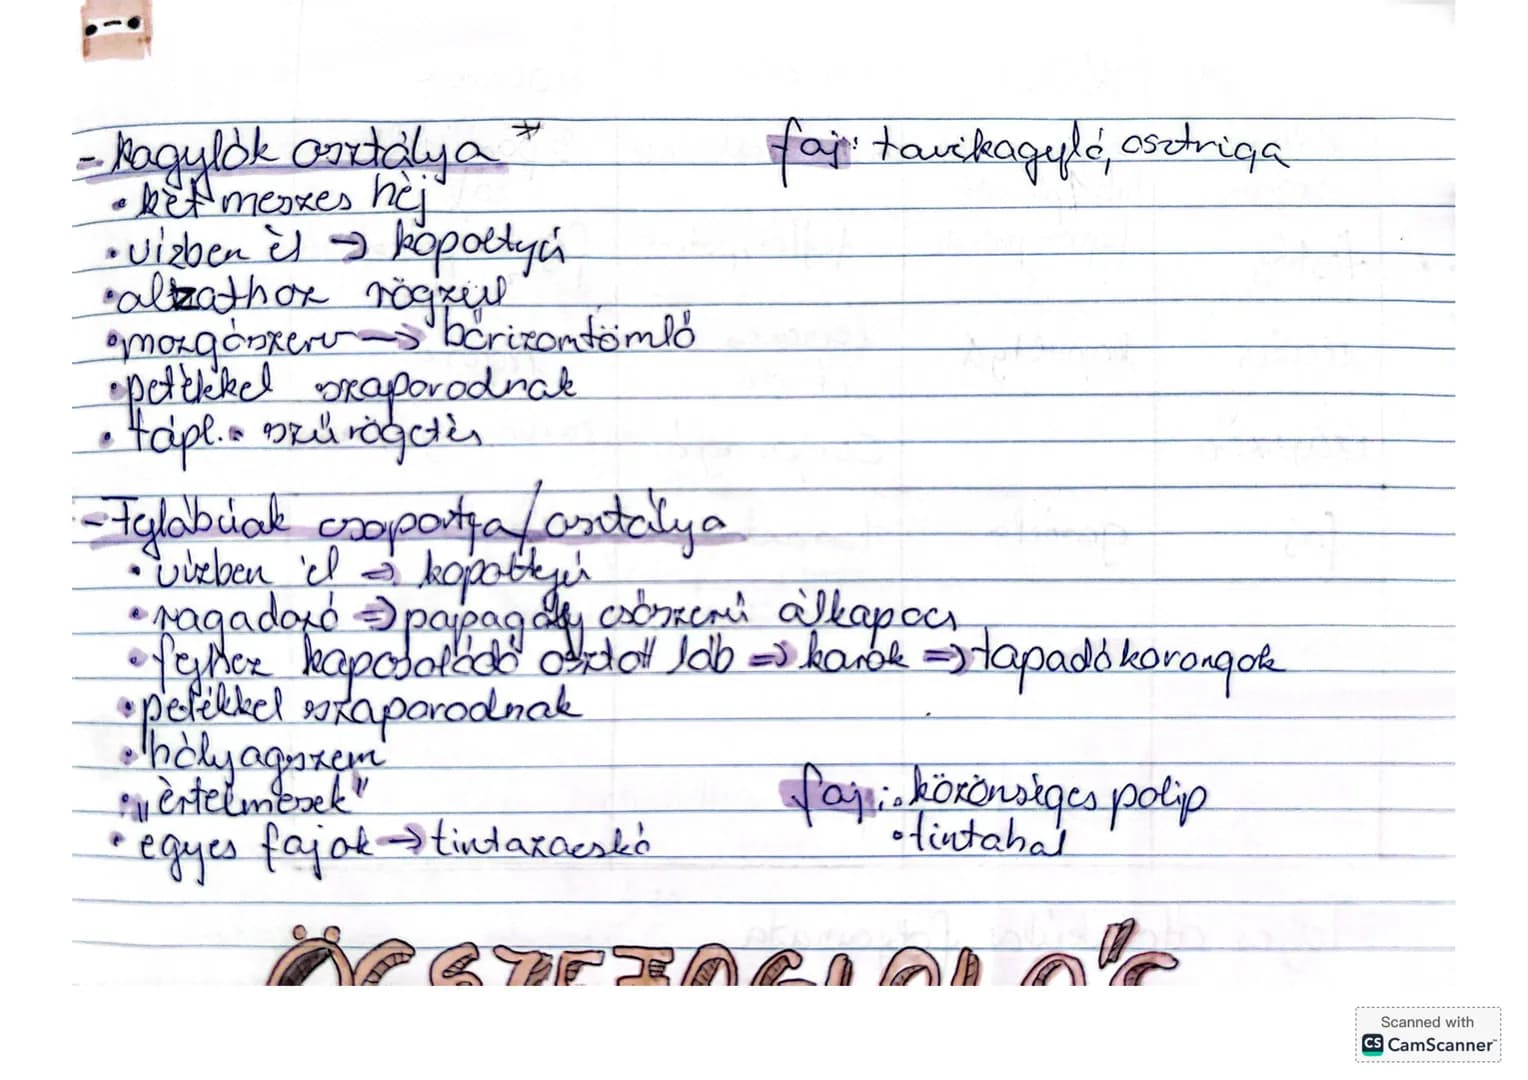 - Kagylók osztálya *
faj: tavikagyló, osztriga
• két meszes héj
• vízben él → kopoltyú
• alzathoz rögzül
• mozgásszerv → bőrizomtömlő
• petékkel szaporodnak
• tápl.: szűrögetés
- Fejlábúak csoportja/osztálya
• vízben él ⇒ kopoltyú
• ragadozó ⇒ papagály csőszerű álkapocs
• fejhez kapcsolódó osztott láb ⇒ karok ⇒ tapadókorongok
• petékkel szaporodnak
• hólyagszem
• „értelmesek"
faj: • közönséges polip
• tintahal
• egyes fajok → tintazacskó
ÖSSZEFOGLALÓ
Scanned with
CS CamScanner